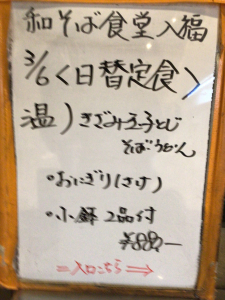 和そば食堂 入福
3/6〈日替定食〉
温）きざみ玉子とじ
そばorうどん
•おにぎり(さけ)
•小鉢 2品付
¥880,—
＝入口こちら⇒